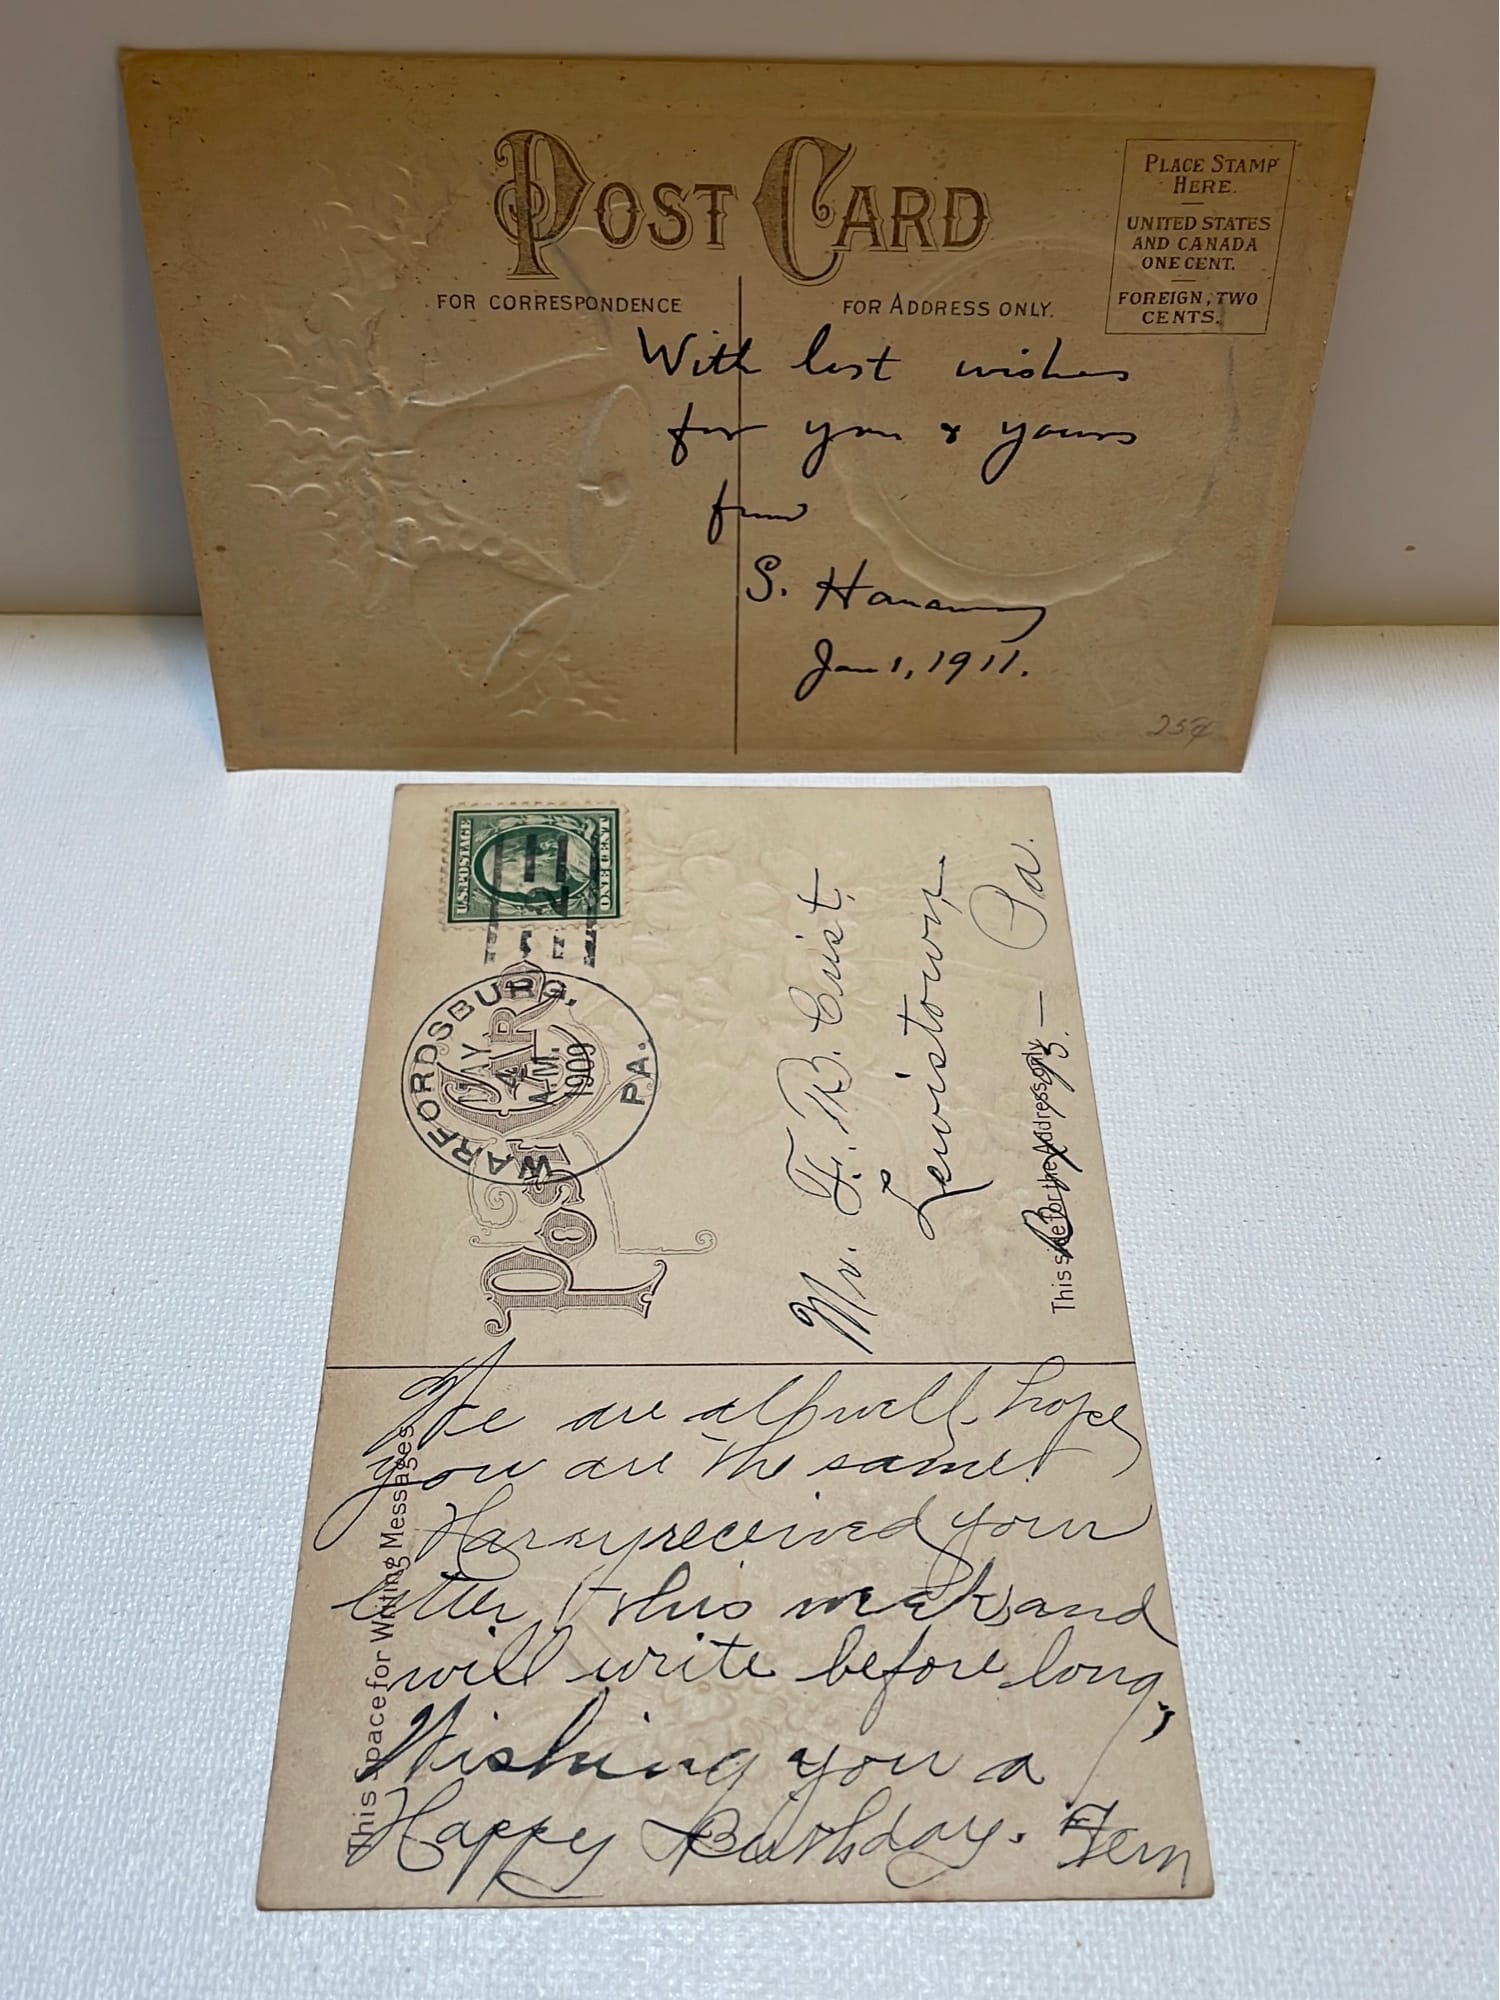 POST CARD
PLACE STAMP
HERE.
UNITED STATES
AND CANADA
ONE CENT.
FOREIGN, TWO
CENTS.
FOR CORRESPONDENCE
FOR ADDRESS ONLY.
With best wishes
for you & yours
from
S. Hanaway
Jan 1, 1911.
25¢
U.S. POSTAGE
WARFORDSBURG,
PA.
MAY
4
A.M.
1909
Post Card
Mr. F. B. Crist,
Lewistown
Pa.
This side for the Address only
This space for Writing Messages
We are all well, hope
you are the same.
Harry received your
letter this week, and
will write before long,
Wishing you a
Happy Birthday. Fern